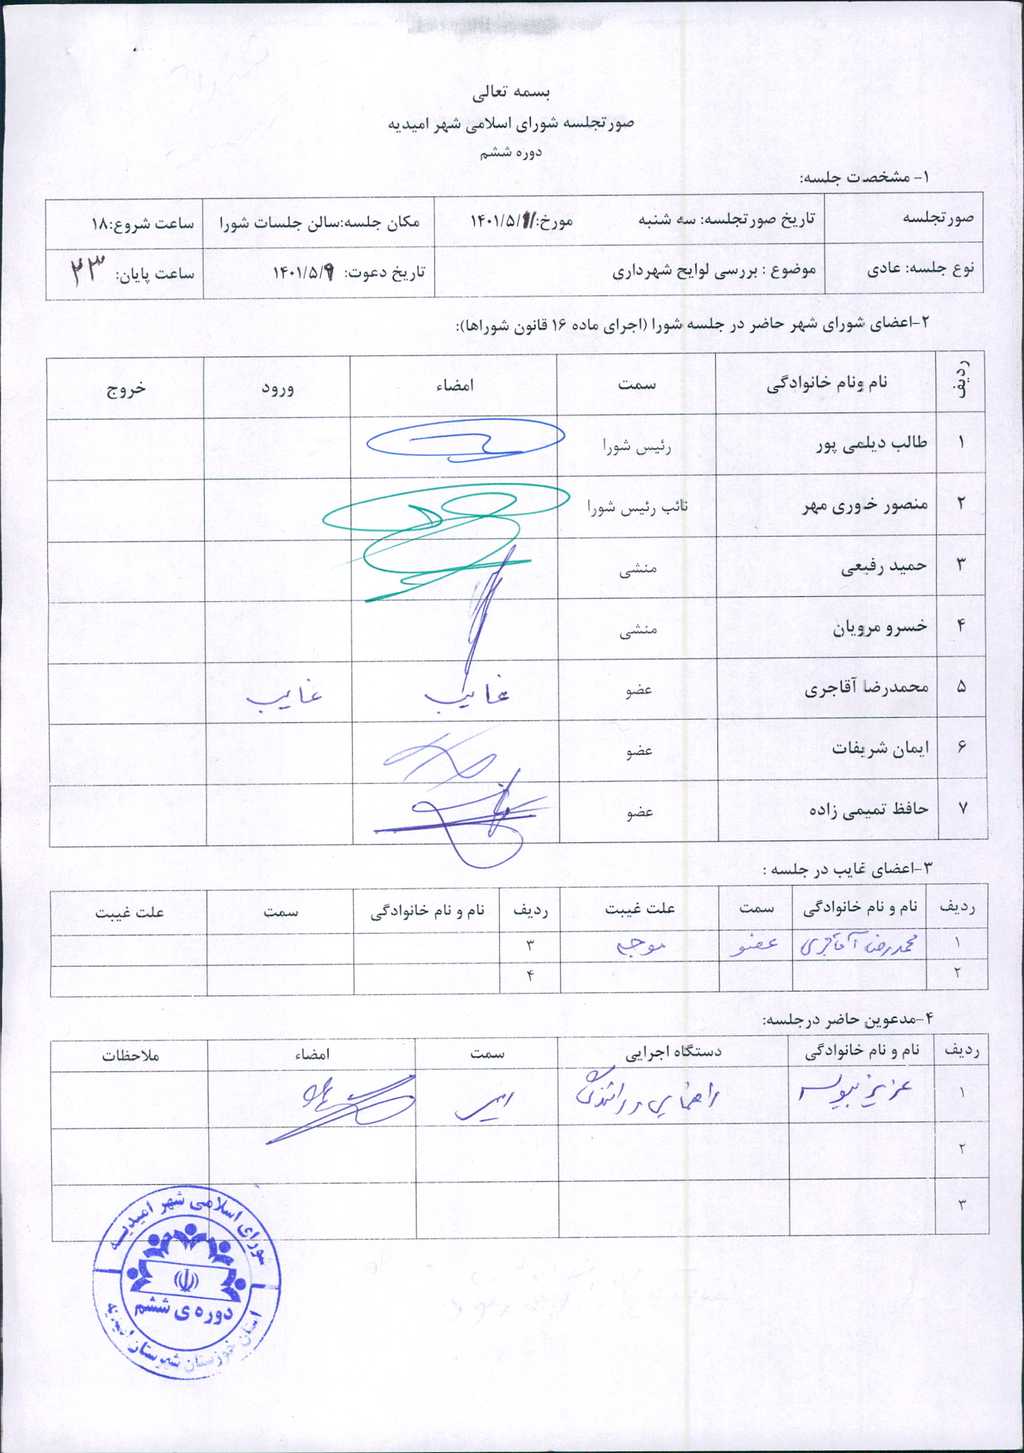 بسمه تعالی
صورتجلسه شورای اسلامی شهر امیدیه
دوره ششم
۱- مشخصت جلسه:
صورتجلسه تاریخ صورتجلسه: سه شنبه مورخ: ۱۴۰۱/۵/۱۱ مکان جلسه:سالن جلسات شورا ساعت شروع:۱۸
نوع جلسه: عادی موضوع : بررسی لوایح شهرداری تاریخ دعوت: ۱۴۰۱/۵/۹ ساعت پایان: ۲۳
۲-اعضای شورای شهر حاضر در جلسه شورا (اجرای ماده ۱۶ قانون شوراها):
ردیف نام ونام خانوادگی سمت امضاء ورود خروج
۱ طالب دیلمی پور رئیس شورا
۲ منصور خاوری مهر نائب رئیس شورا
۳ حمید رفیعی منشی
۴ خسرو مرویان منشی
۵ محمدرضا آقاجری عضو غایب غایب
۶ ایمان شریفات عضو
۷ حافظ تمیمی زاده عضو
۳-اعضای غایب در جلسه :
ردیف نام و نام خانوادگی سمت علت غیبت ردیف نام و نام خانوادگی سمت علت غیبت
۱ محمدرضا آقاجری عضو موجه ۳
۲ ۴
۴-مدعوین حاضر درجلسه:
ردیف نام و نام خانوادگی دستگاه اجرایی سمت امضاء ملاحظات
۱ عزیز راهنمایی و رانندگی رئیس
۲
۳
شورای اسلامی شهر امیدیه
دوره ی ششم
استان خوزستان شهرستان امیدیه